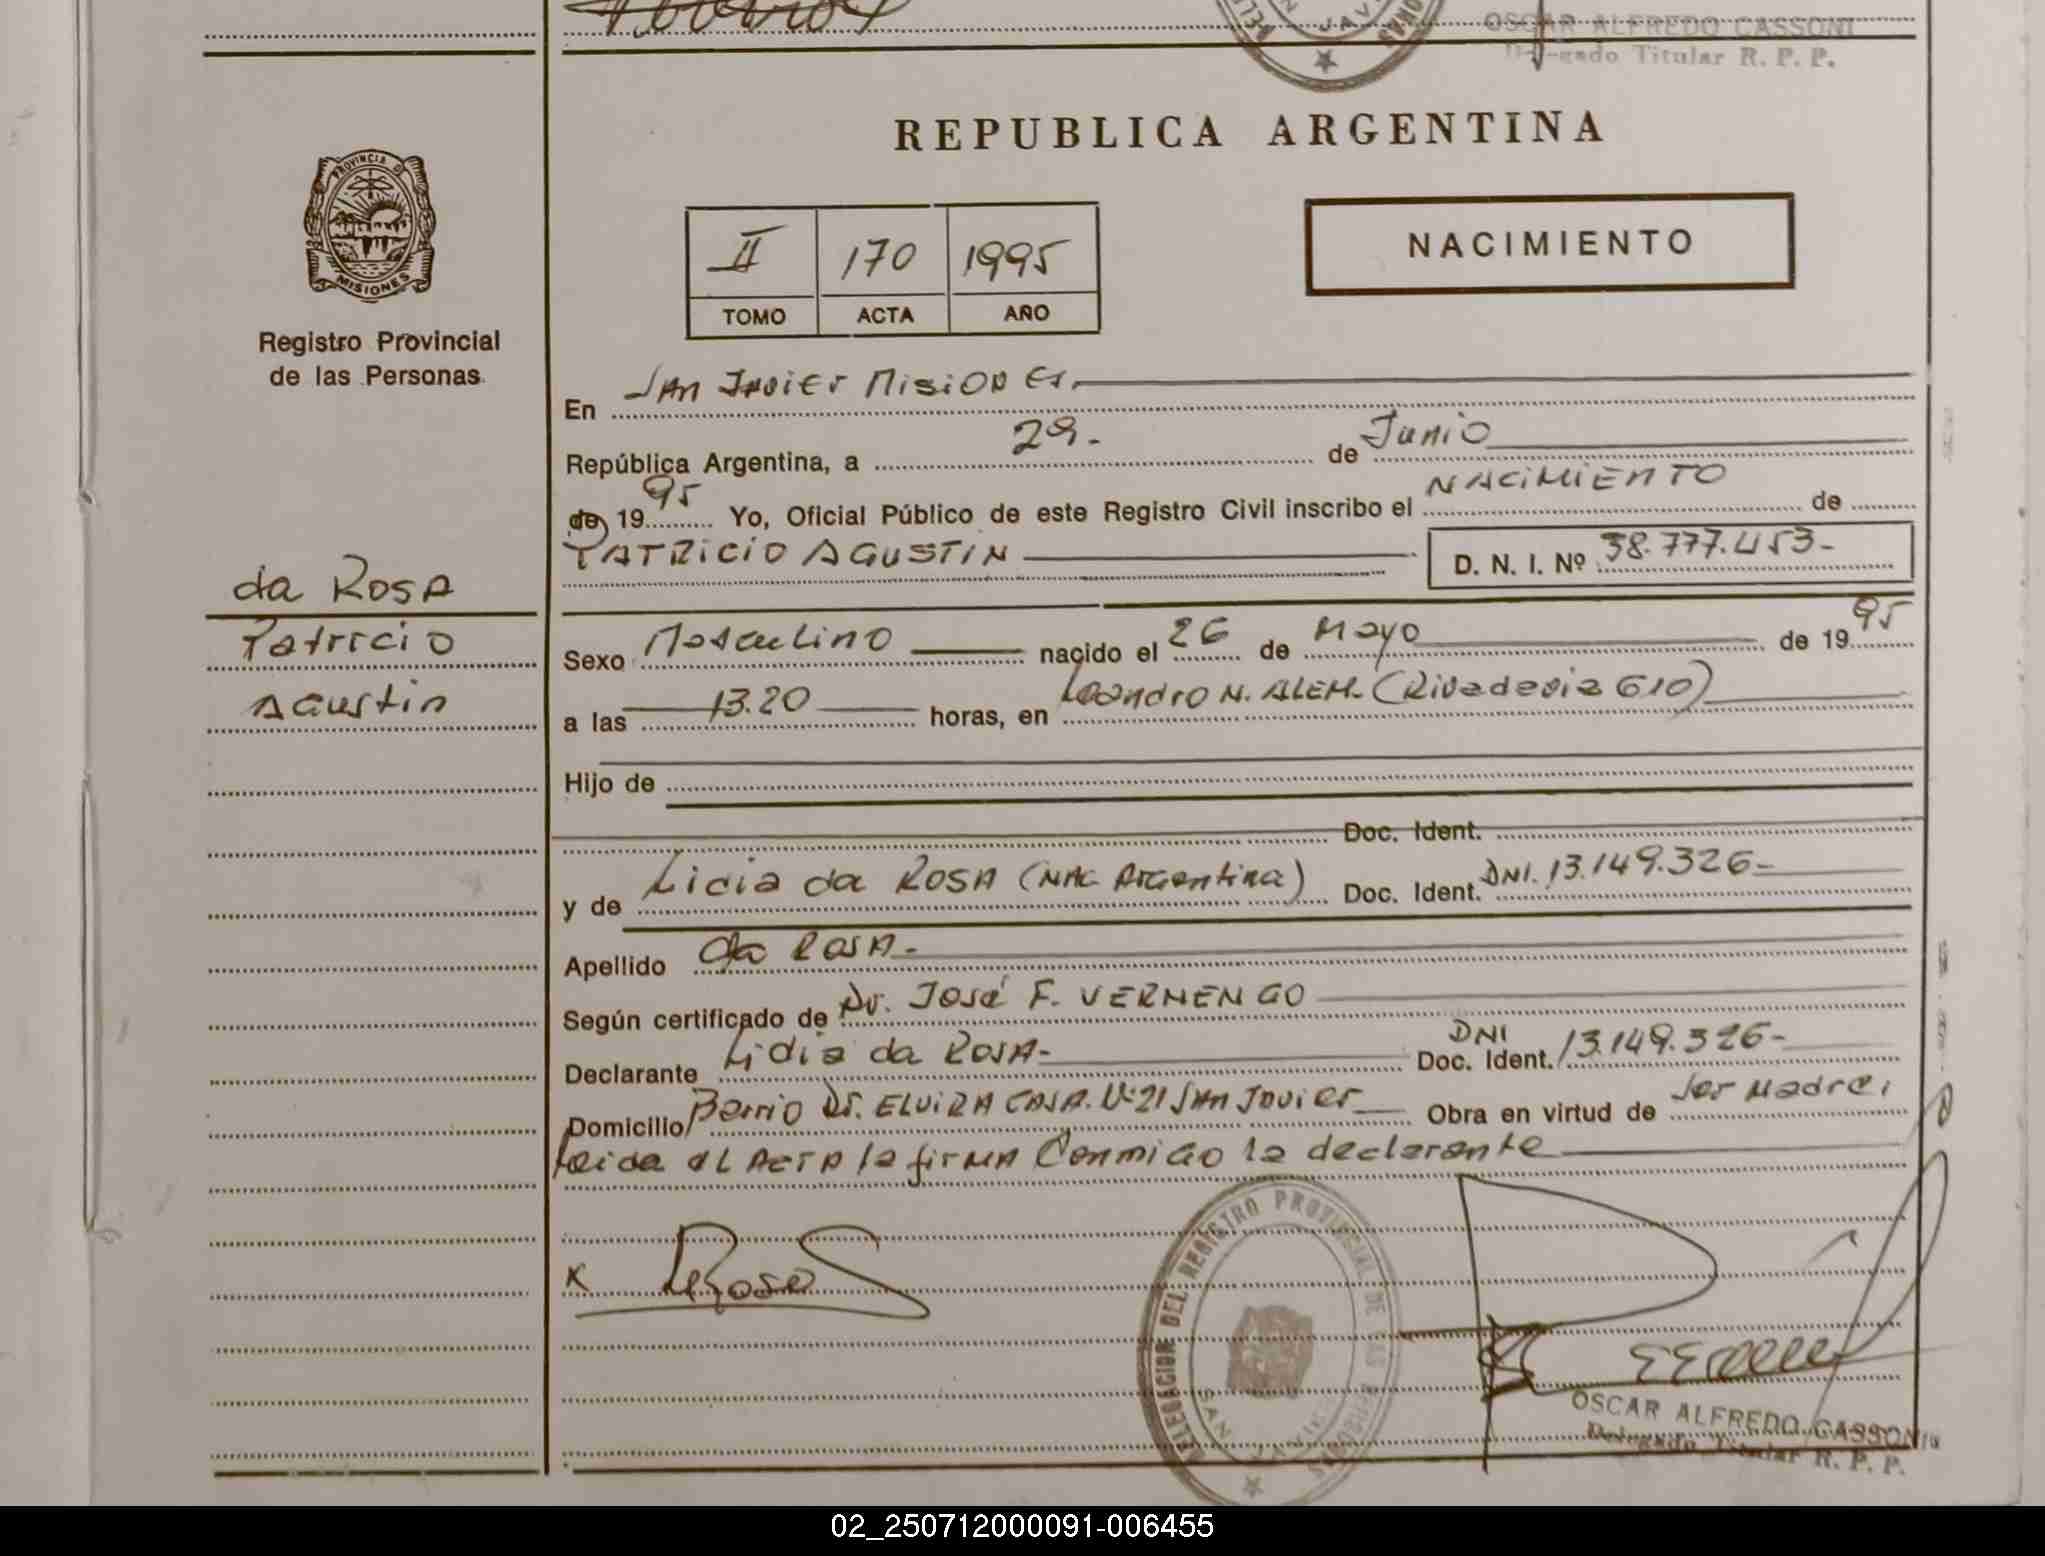 OSCAR ALFREDO CASSONI
Delegado Titular R. P. P.
REPUBLICA ARGENTINA
PROVINCIA DE
MISIONES
Registro Provincial
de las Personas
II 170 1995
TOMO ACTA AÑO
NACIMIENTO
En San Javier Misiones.
República Argentina, a 29.- de Junio
de 1995 Yo, Oficial Público de este Registro Civil inscribo el NACIMIENTO de
PATRICIO AGUSTIN D. N. I. Nº 38.777.453-
da ROSA
Patricio
Agustin
Sexo Masculino nacido el 26 de Mayo de 1995
a las 13.20 horas, en Leandro N. ALEM. (Rivadavia 610)
Hijo de
Doc. Ident.
y de Lidia da ROSA (NAC Argentina) Doc. Ident. DNI. 13.149.326-
Apellido da ROSA.-
Según certificado de Dr. José F. VERNENGO
Declarante Lidia da ROSA- Doc. Ident. DNI 13.149.326-
Domicilio Barrio Dr. ELVIRA CASA. Nº 21 San Javier Obra en virtud de ser Madre.
leida el ACTA la firma Conmigo la declarante
x
DELEGACION DEL REGISTRO PROVINCIAL DE LAS PERSONAS
SAN JAVIER
OSCAR ALFREDO CASSONI
Delegado Titular R. P. P.
02_250712000091-006455